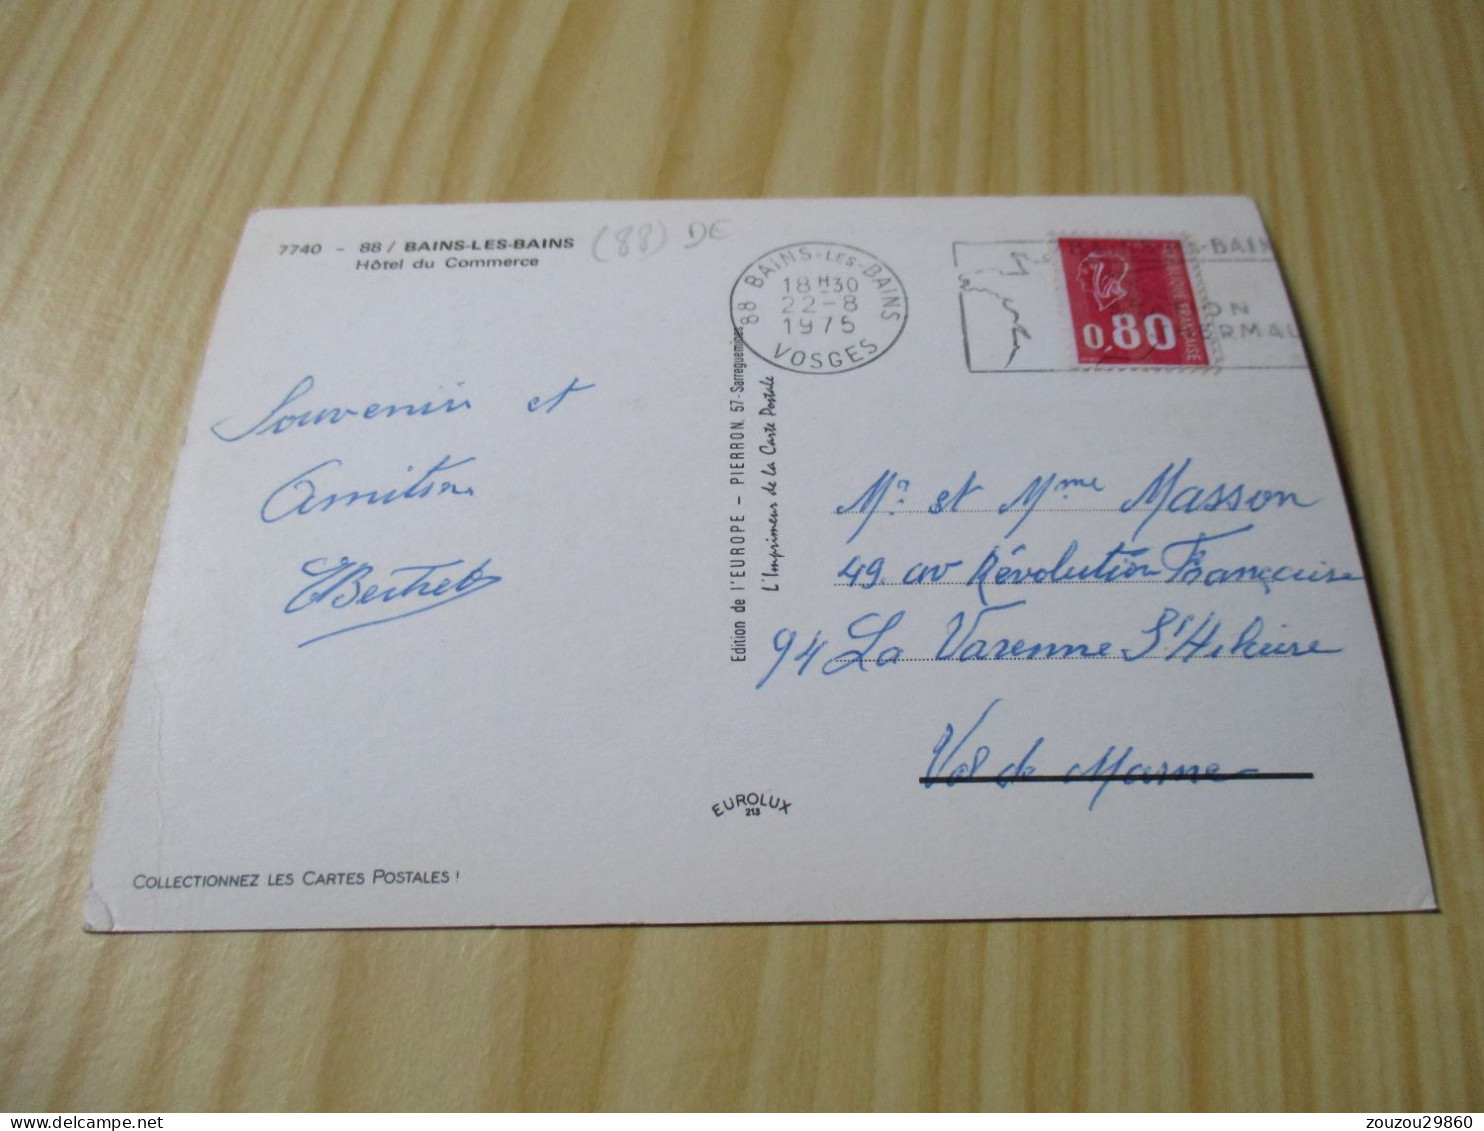 7740 - 88 / BAINS-LES-BAINS
Hôtel du Commerce
(88) DE
88 BAINS-LES-BAINS
18H30
22-8
1975
VOSGES
-BAIN
ON
ERMAL
REPUBLIQUE FRANÇAISE
0,80
Souvenirs et
Amitiés
EBerthet
Edition de l'EUROPE - PIERRON, 57-Sarreguemines
L'Imprimeur de la Carte Postale
Mr et Mme Masson
49 av Révolution Française
94 La Varenne St Hilaire
Val de Marne
EUROLUX
213
COLLECTIONNEZ LES CARTES POSTALES !
zouzou29860